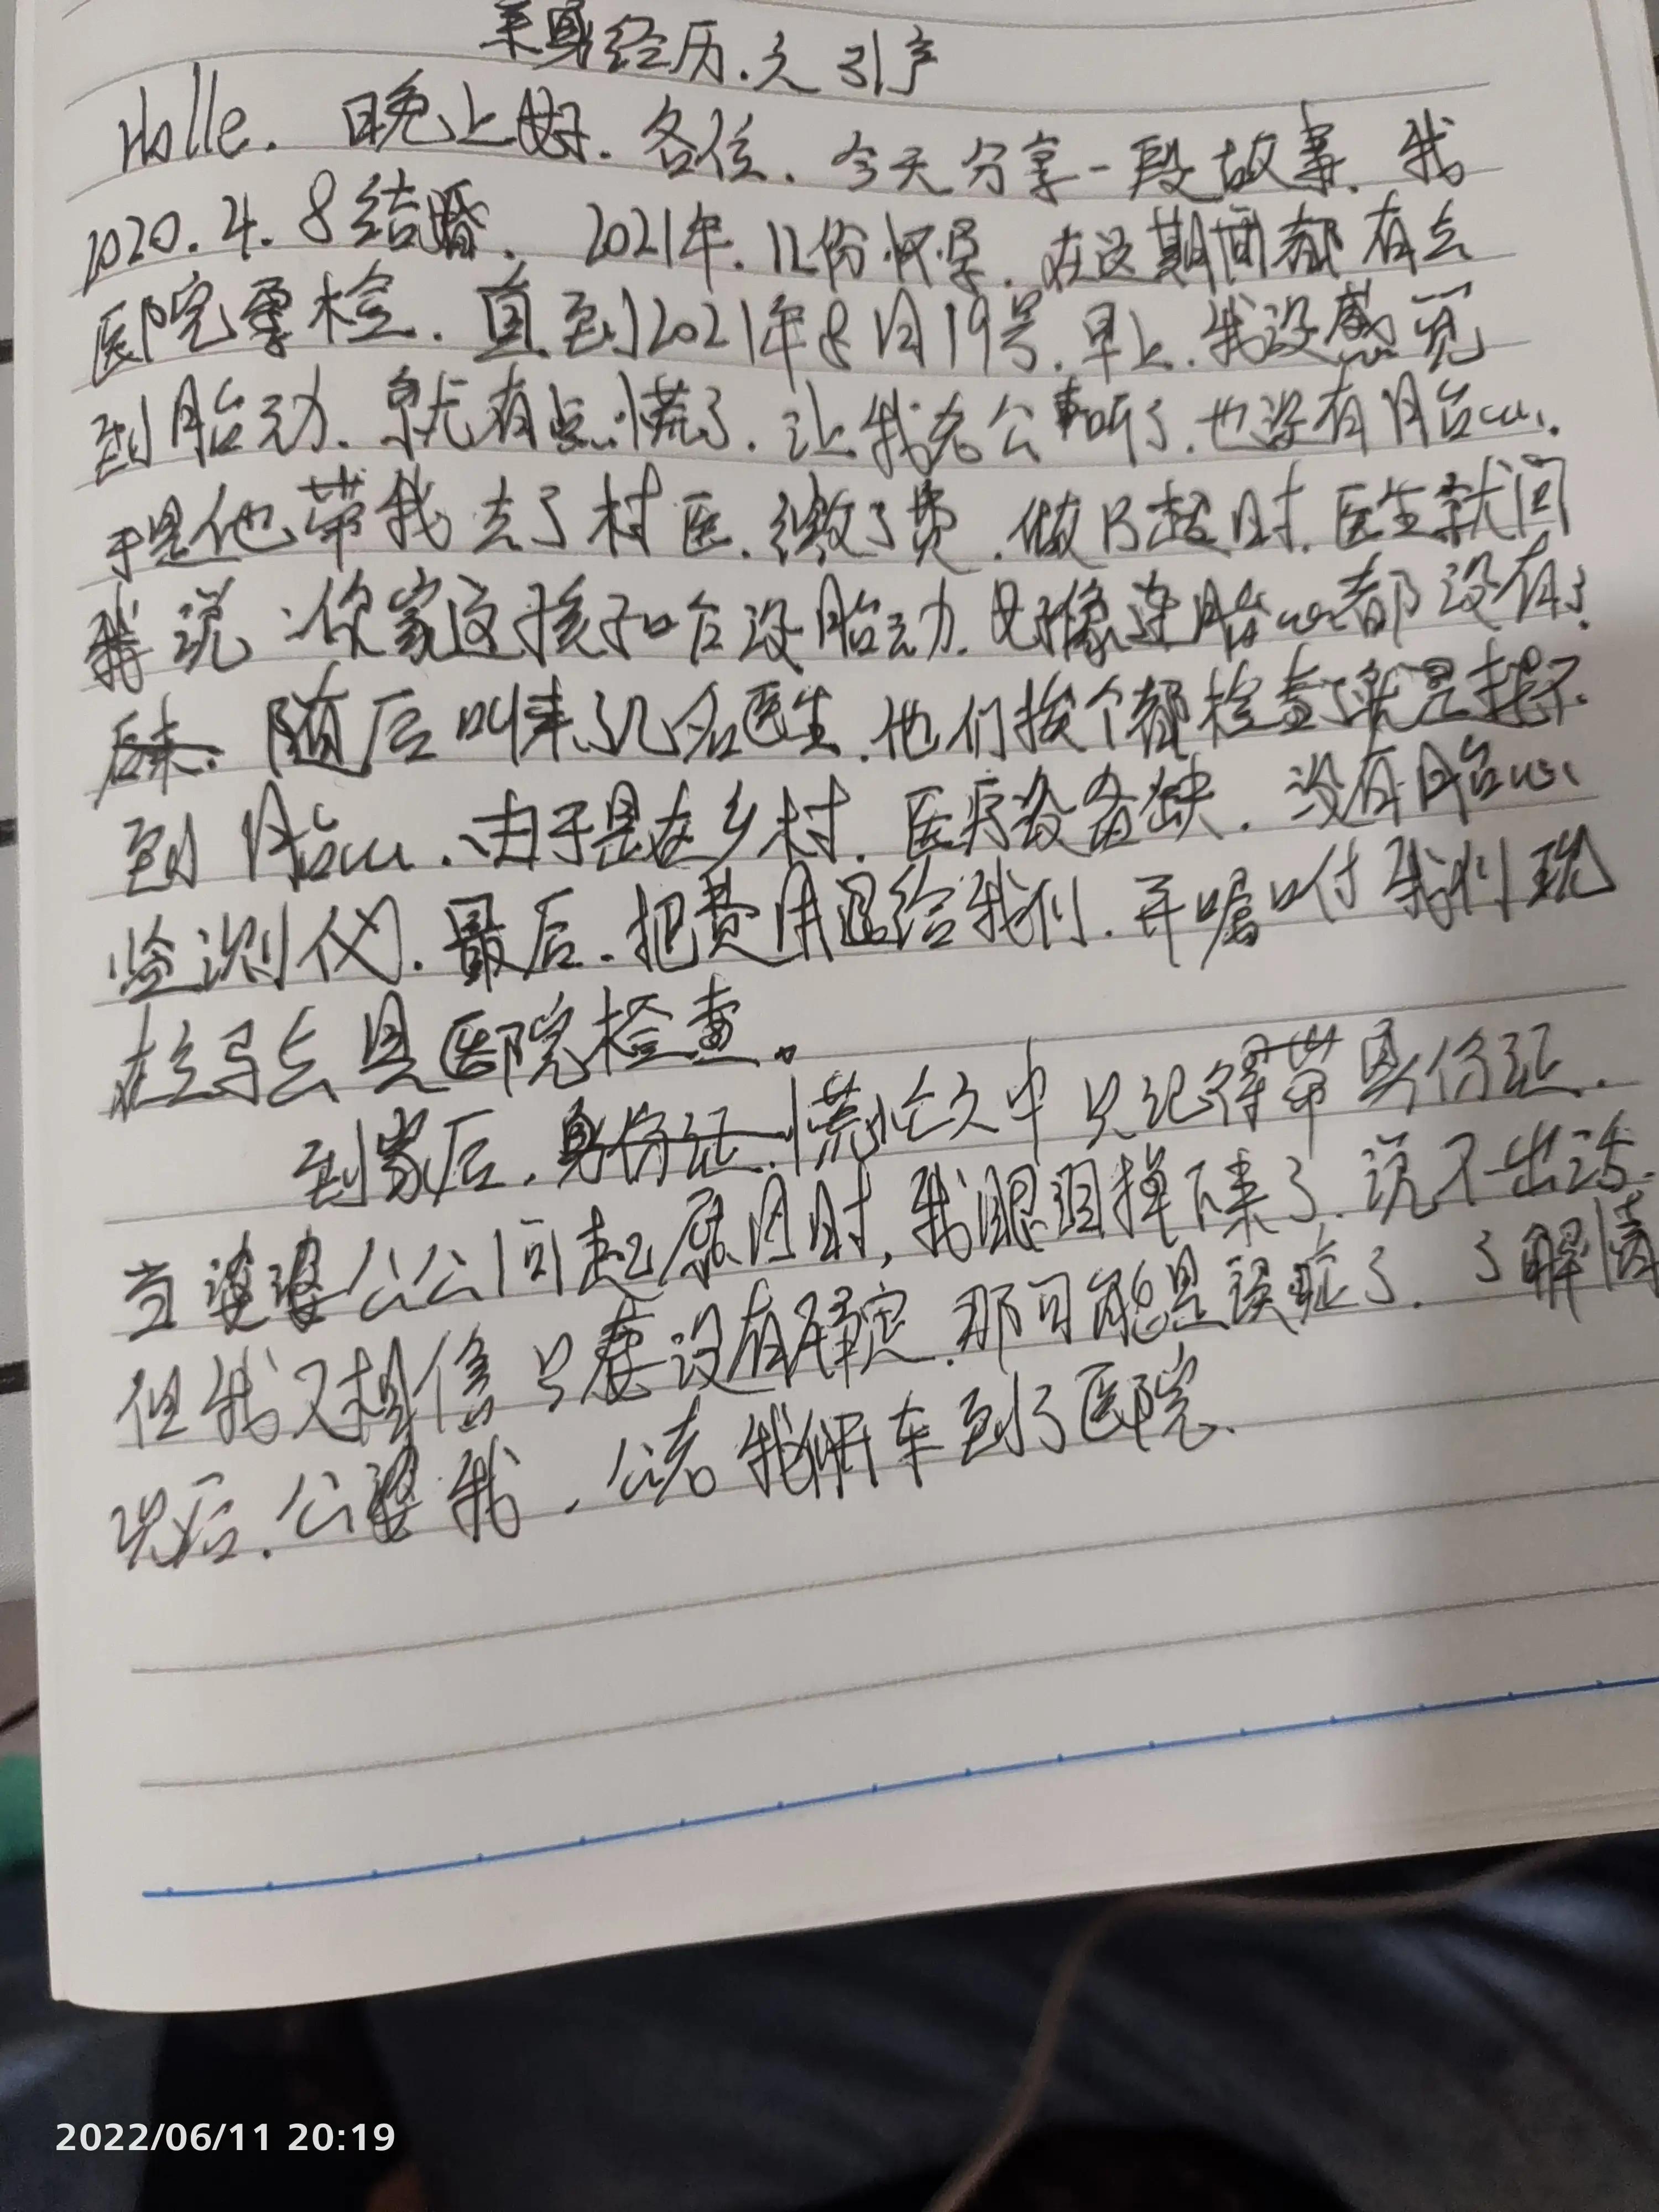 亲身经历.之引产
Holle. 晚上好. 各位. 今天分享一段故事. 我
2020.4.8结婚. 2021年.12份怀孕. 在这期间都有去
医院孕检. 直到2021年8月19号.早上.我没感觉
到胎动. 就有点慌了. 让我老公听了.也没有胎心.
于是他带我去了村医.缴了费.做B超时.医生就问
我说:你家这孩子咋没胎动.好像连胎心都没有了.
后来.随后叫来了几名医生.他们挨个都检查了就是找不
到胎心.由于是在乡村.医疗设备缺.没有胎心
监测仪.最后.把费用退给我们.并嘱咐我们现
在立马去县医院检查。
到家后.身份证.慌忙之中只记得带身份证.
当婆婆公公问起原因时,我眼泪掉下来了.说不出话.
但我又相信只要没有确定.那可能是误诊了.了解情
况后.公婆我.公 我们开车到了医院.
2022/06/11 20:19